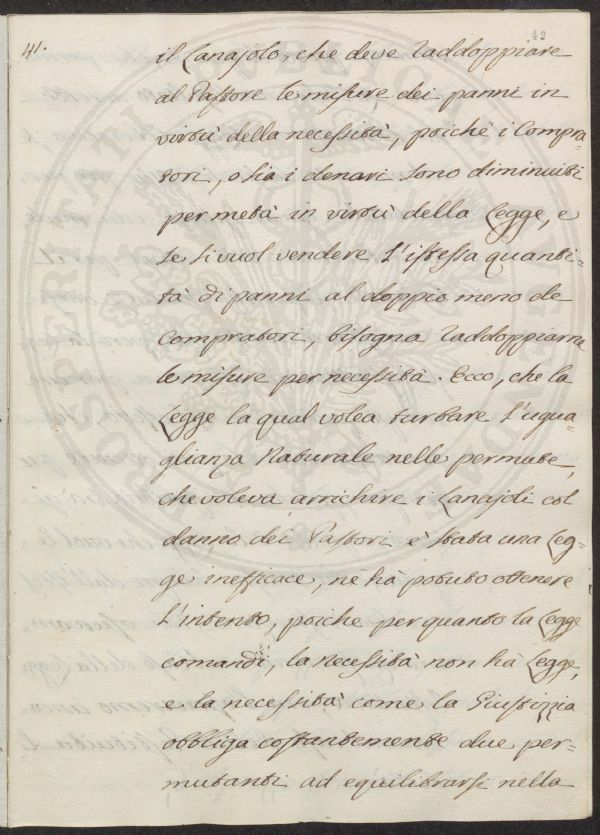 42
41.
il Lanajolo, che deve raddoppiare
al Pastore le misure dei panni in
virtù della necessità, poichè i Compra-
tori, o sia i denari sono diminuiti
per metà in virtù della Legge, e
se si vuol vendere l'istessa quanti-
tà di panni al doppio meno de
Compratori, bisogna raddoppiarne
le misure per necessità. Ecco, che la
Legge la qual volea turbare l'ugua-
glianza Naturale nelle permute,
che voleva arrichire i Lanajoli col
danno dei Pastori è stata una Leg-
ge inefficace, nè hà potuto ottenere
l'intento, poiche per quanto la Legge
comandi, la necessità non hà Legge,
e la necessità come la Giustizzia
obbliga costantemente due per-
mutanti ad equilibrarsi nella